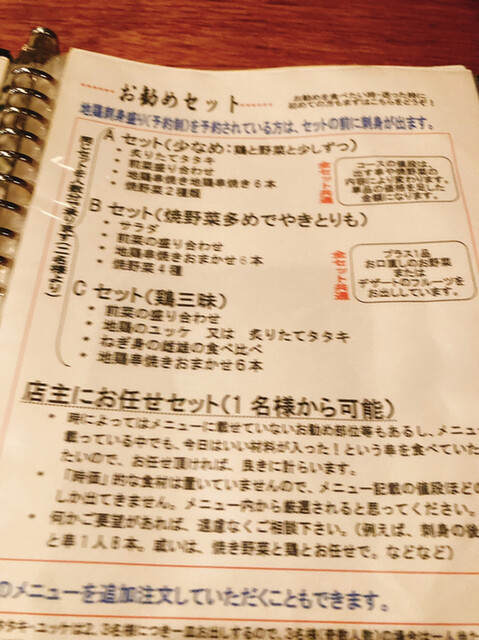 お勧めセット
お勧めを食べたい時・迷った時に
初めての方もまずはこちらをどうぞ！
地鶏刺身盛り(予約制)を予約されている方は、セットの前に刺身が出ます。
A セット(少なめ：鶏と野菜と少しずつ)
炙りたてタタキ
前菜盛り合わせ
地鶏串焼き地鶏串焼き６本
焼野菜２種類
全セット共通
コースの値段は、
出す串や焼野菜の
内容により変わります。
単品の価格を足した
金額になります。
B セット(焼野菜多めでやきとりも)
サラダ
前菜の盛り合わせ
地鶏串焼きおまかせ６本
焼野菜４種
全セット共通
プラス１品
お口直しのお野菜
または
デザートのフルーツを
お出ししています。
C セット(鶏三昧)
前菜の盛り合わせ
地鶏のユッケ　又は　炙りたてタタキ
ねぎ身の雌雄の食べ比べ
地鶏串焼きおまかせ６本
店主にお任せセット(１名様から可能)
時によってはメニューに載せていないお勧め部位等もあるし、メニュー
載っている中でも、今日はいい材料が入った！という串を食べていた
たいので、お任せ頂ければ、良きに計らいます。
「時価」的な食材は置いていませんので、メニュー記載の値段ほどの
しか出てきません。メニュー内から厳選されると思ってください。
何かご要望があれば、遠慮なくご相談下さい。(例えば、刺身の後
と串１人８本。或いは、焼き野菜と鶏とお任せで。などなど)
のメニューを追加注文していただくこともできます。